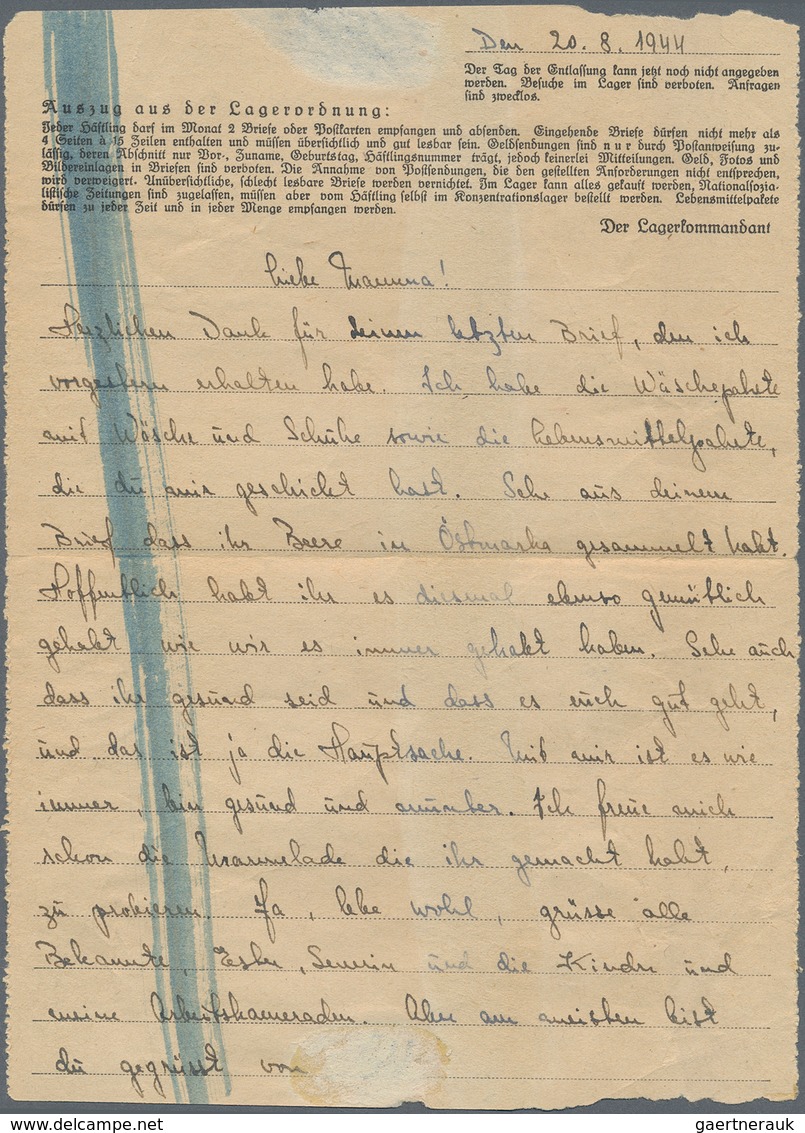 Den 20. 8. 1944
Der Tag der Entlassung kann jetzt noch nicht angegeben
werden. Besuche im Lager sind verboten. Anfragen
sind zwecklos.
Auszug aus der Lagerordnung:
Jeder Häftling darf im Monat 2 Briefe oder Postkarten empfangen und absenden. Eingehende Briefe dürfen nicht mehr als
4 Seiten à 15 Zeilen enthalten und müssen übersichtlich und gut lesbar sein. Geldsendungen sind nur durch Postanweisung zu-
lässig, deren Abschnitt nur Vor-, Zuname, Geburtstag, Häftlingsnummer trägt, jedoch keinerlei Mitteilungen. Geld, Fotos und
Bildereinlagen in Briefen sind verboten. Die Annahme von Postsendungen, die den gestellten Anforderungen nicht entsprechen,
wird verweigert. Unübersichtliche, schlecht lesbare Briefe werden vernichtet. Im Lager kann alles gekauft werden, Nationalsozia-
listische Zeitungen sind zugelassen, müssen aber vom Häftling selbst im Konzentrationslager bestellt werden. Lebensmittelpakete
dürfen zu jeder Zeit und in jeder Menge empfangen werden.
Der Lagerkommandant
Liebe Mamma!
Herzlichen Dank für deinen letzten Brief, den ich
vorgestern erhalten habe. Ich habe die Wäschepakete
mit Wäsche und Schuhe sowie die Lebensmittelpakete,
die du mir geschickt hast. Sehe aus deinem
Brief dass ihr Beere in Östmarka gesammelt habt.
Hoffentlich habt ihr es diesmal ebenso gemütlich
gehabt wie wir es immer gehabt haben. Sehe auch
dass ihr gesund seid und dass es euch gut geht,
und das ist ja die Hauptsache. Mit mir ist es wie
immer, bin gesund und munter. Ich freue mich
schon die Marmelade die ihr gemacht habt,
zu probieren. Ja, lebe wohl, grüsse alle
Bekannte, Severin und die Kinder und
meine Arbeitskameraden. Aber am meisten bist
du gegrüsst von
gaertnerauk